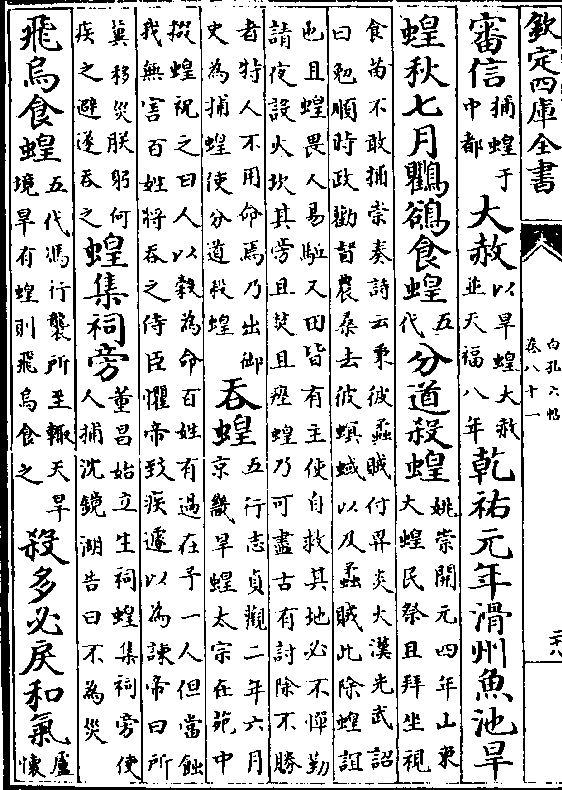 欽定四庫全書
白孔六帖
卷八十一
審信捕蝗于中都大赦以旱蝗大赦並天福八年乾祐元年滑州魚池旱
蝗秋七月鸜鵒食蝗五代分道殺蝗姚崇開元四年山東大蝗民祭且拜坐視
食苗不敢捕崇奏詩云秉彼蟊賊付畀炎火漢光武詔
曰勉順時政勸督農桑去彼螟蜮以及蟊賊此除蝗誼
也且蝗畏人易驅又田皆有主使自救其地必不憚勤
請夜設火坎其旁且焚且瘞蝗乃可盡古有討除不勝
者特人不用命焉乃出御史為捕蝗使分道殺蝗吞蝗五行志貞觀二年六月京畿旱蝗太宗在苑中
掇蝗祝之曰人以穀為命百姓有過在予一人但當蝕
我無害百姓將吞之侍臣懼帝致疾遽以為諫帝曰所
冀移災朕躬何疾之避遂吞之蝗集祠旁董昌始立生祠蝗集祠旁使人捕沈鏡湖告曰不為災
飛烏食蝗五代馮行襲所至輒天旱境旱有蝗則飛烏食之殺多必戾和氣盧懷